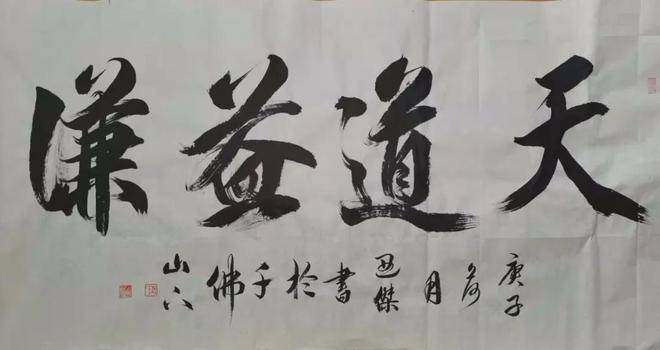 天道益谦
庚子荷月傑書於千佛山下